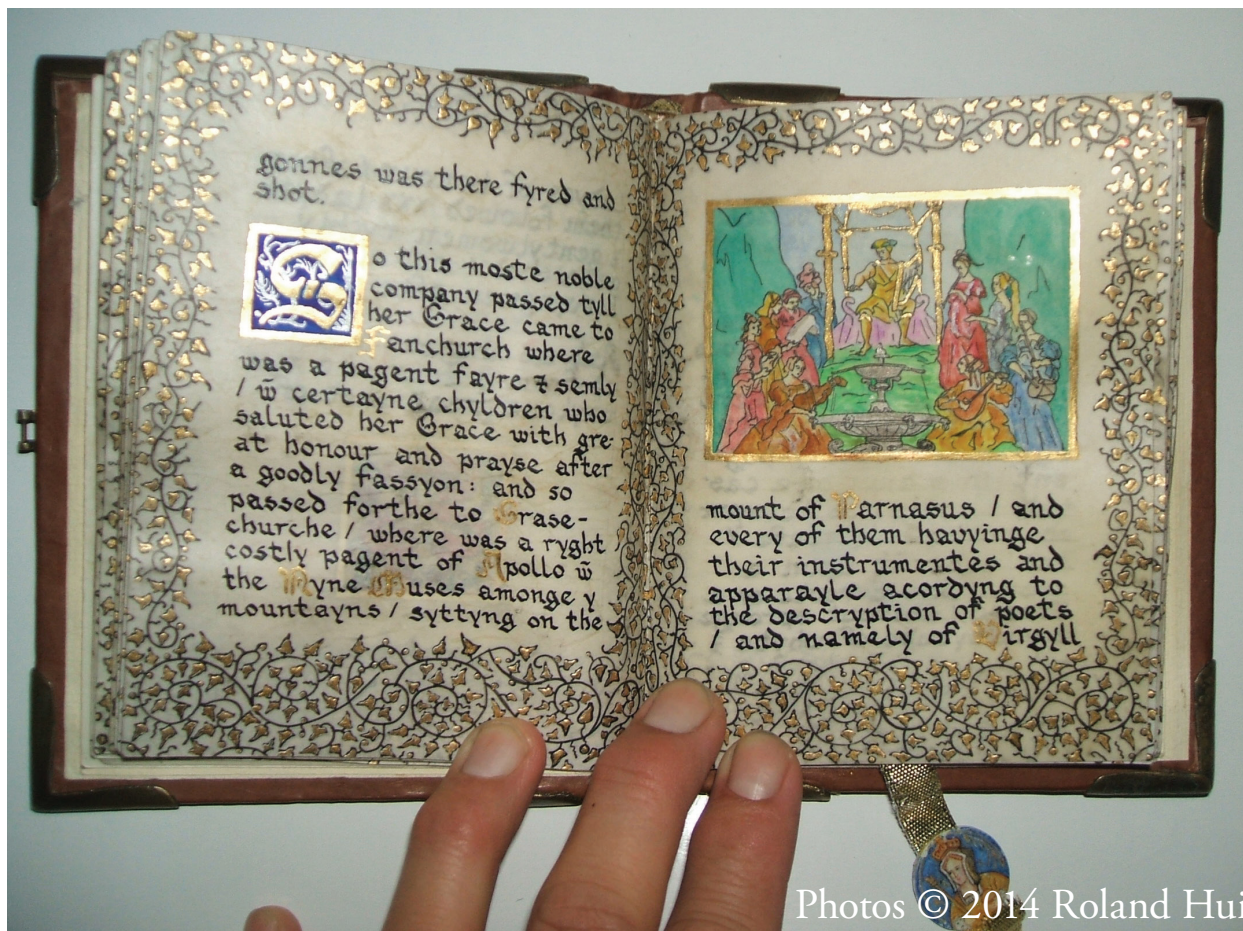 gonnes was there fyred and
shot.
So this moste noble
company passed tyll
her Grace came to
Fanchurch where
was a pagent fayre ⁊ semly
/ w̃ certayne chyldren who
saluted her Grace with gre-
at honour and prayse after
a goodly fassyon: and so
passed forthe to Grase-
churche / where was a ryght
costly pagent of Apollo w̃
the Nyne Muses amonge y
mountayns / syttyng on the
mount of Parnasus / and
every of them havyinge
their instrumentes and
apparayle acordyng to
the descryption of poets
/ and namely of Virgyll
Photos © 2014 Roland Hui